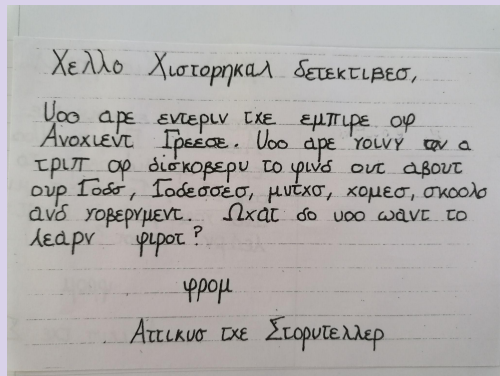 Χελλο Χιστορηκαλ δετεκτιβεσ,
Υοο αρε εντεριν τχε εμπιρε οφ
Ανοχιεντ Γρεεσε. Υοο αρε γοινγ ον α
τριπ οφ δισκοβερυ το φινδ ουτ αβουτ
ουρ Γοδσ, Γοδεσσεσ, μυτχσ, χομεσ, σκοολσ
ανδ γοβερνμεντ. Ωχατ δο υοο ωαντ το
λεαρν φιροτ?
φρομ
Αττικυσ τχε Στορυτελλερ